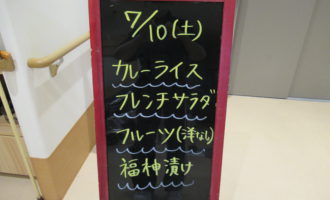 7/10(土)
カレーライス
フレンチサラダ
フルーツ(洋なし)
福神漬け